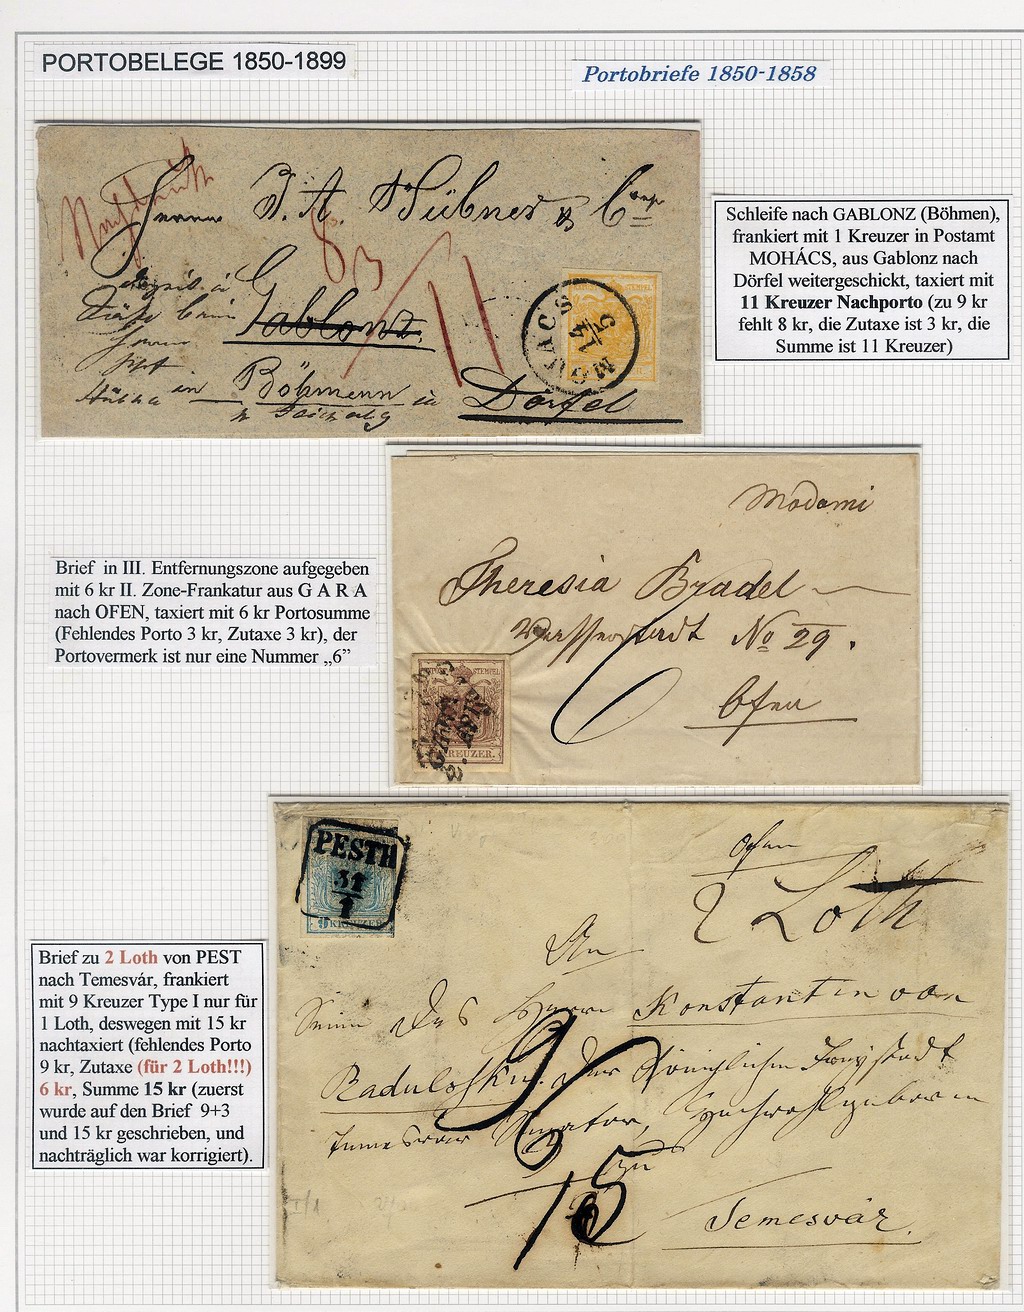 PORTOBELEGE 1850-1899
Portobriefe 1850-1858
J. A. Hübner & Comp
8
3
11
Gablonz
in Böhmen
Dörfel
MOHACS
14
5
Schleife nach GABLONZ (Böhmen),
frankiert mit 1 Kreuzer in Postamt
MOHÁCS, aus Gablonz nach
Dörfel weitergeschickt, taxiert mit
11 Kreuzer Nachporto (zu 9 kr
fehlt 8 kr, die Zutaxe ist 3 kr, die
Summe ist 11 Kreuzer)
Madami
Theresia Bradel
Wasserstadt No 29.
6
Ofen
KREUZER.
Brief in III. Entfernungszone aufgegeben
mit 6 kr II. Zone-Frankatur aus G A R A
nach OFEN, taxiert mit 6 kr Portosumme
(Fehlendes Porto 3 kr, Zutaxe 3 kr), der
Portovermerk ist nur eine Nummer „6”
PESTH
31
1
9 KREUZER
Ofen
2 Loth
An
Seine des Herrn Konstantin von
9
15
zu
Temesvár.
Brief zu 2 Loth von PEST
nach Temesvár, frankiert
mit 9 Kreuzer Type I nur für
1 Loth, deswegen mit 15 kr
nachtaxiert (fehlendes Porto
9 kr, Zutaxe (für 2 Loth!!!)
6 kr, Summe 15 kr (zuerst
wurde auf den Brief 9+3
und 15 kr geschrieben, und
nachträglich war korrigiert).